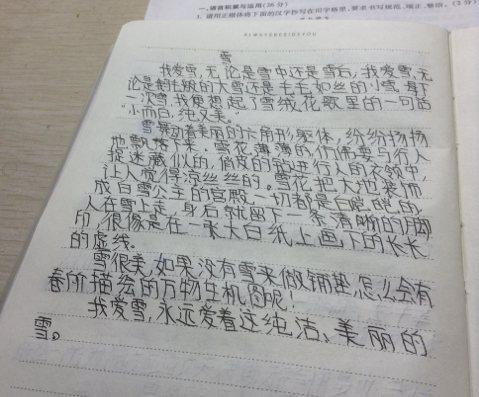 一、语言积累与运用(36分)
1. 请用正楷体将下面的汉字抄写在田字格里,要求书写规范、端正、整洁。(2分)
ALWAYS BESIDE YOU
雪
我爱雪,无论是雪中还是雪后,我爱雪,无
论是鹅毛般的大雪还是毛毛如丝的小雪。每下
一次雪,我便想起了雪绒花歌里的一句的
“小而白,纯又美。”
雪舞动着美丽的六角形躯体,纷纷扬扬
地飘落下来,雪花薄薄的,仿佛要与行人
捉迷藏似的,俏皮的钻进行人的衣领中,
让人觉得凉丝丝的。雪花把大地装饰
成白雪公主的宫殿,一切都是白皑皑的,
人在雪上走,身后就留下一条清晰的脚
印,很像是在一张大白纸上画下的长长
的虚线。
雪很美,如果没有雪来做铺垫,怎么会有
春阶描绘的万物生机图呢!
我爱雪,永远爱着这纯洁、美丽的
雪。